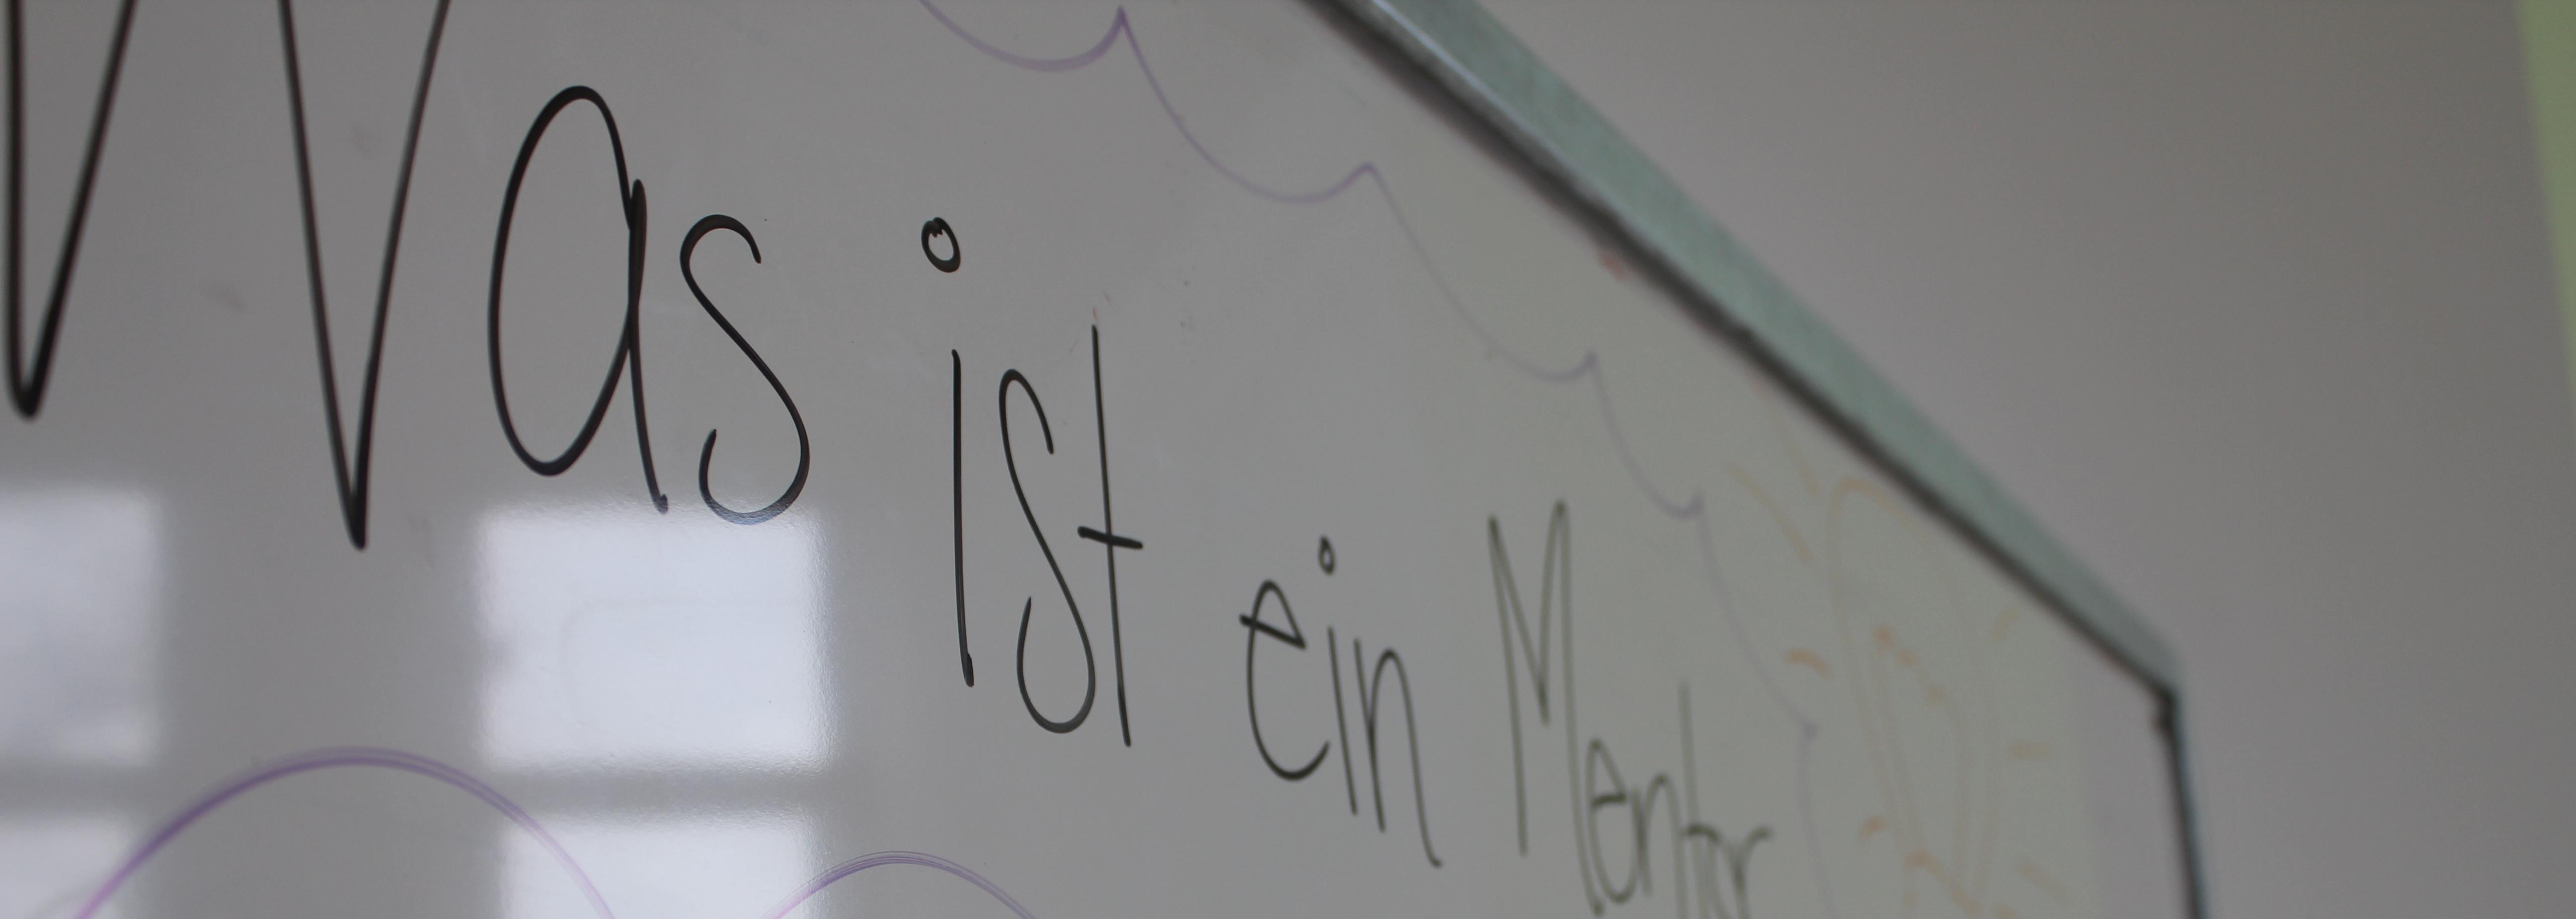 Was ist ein Mentor